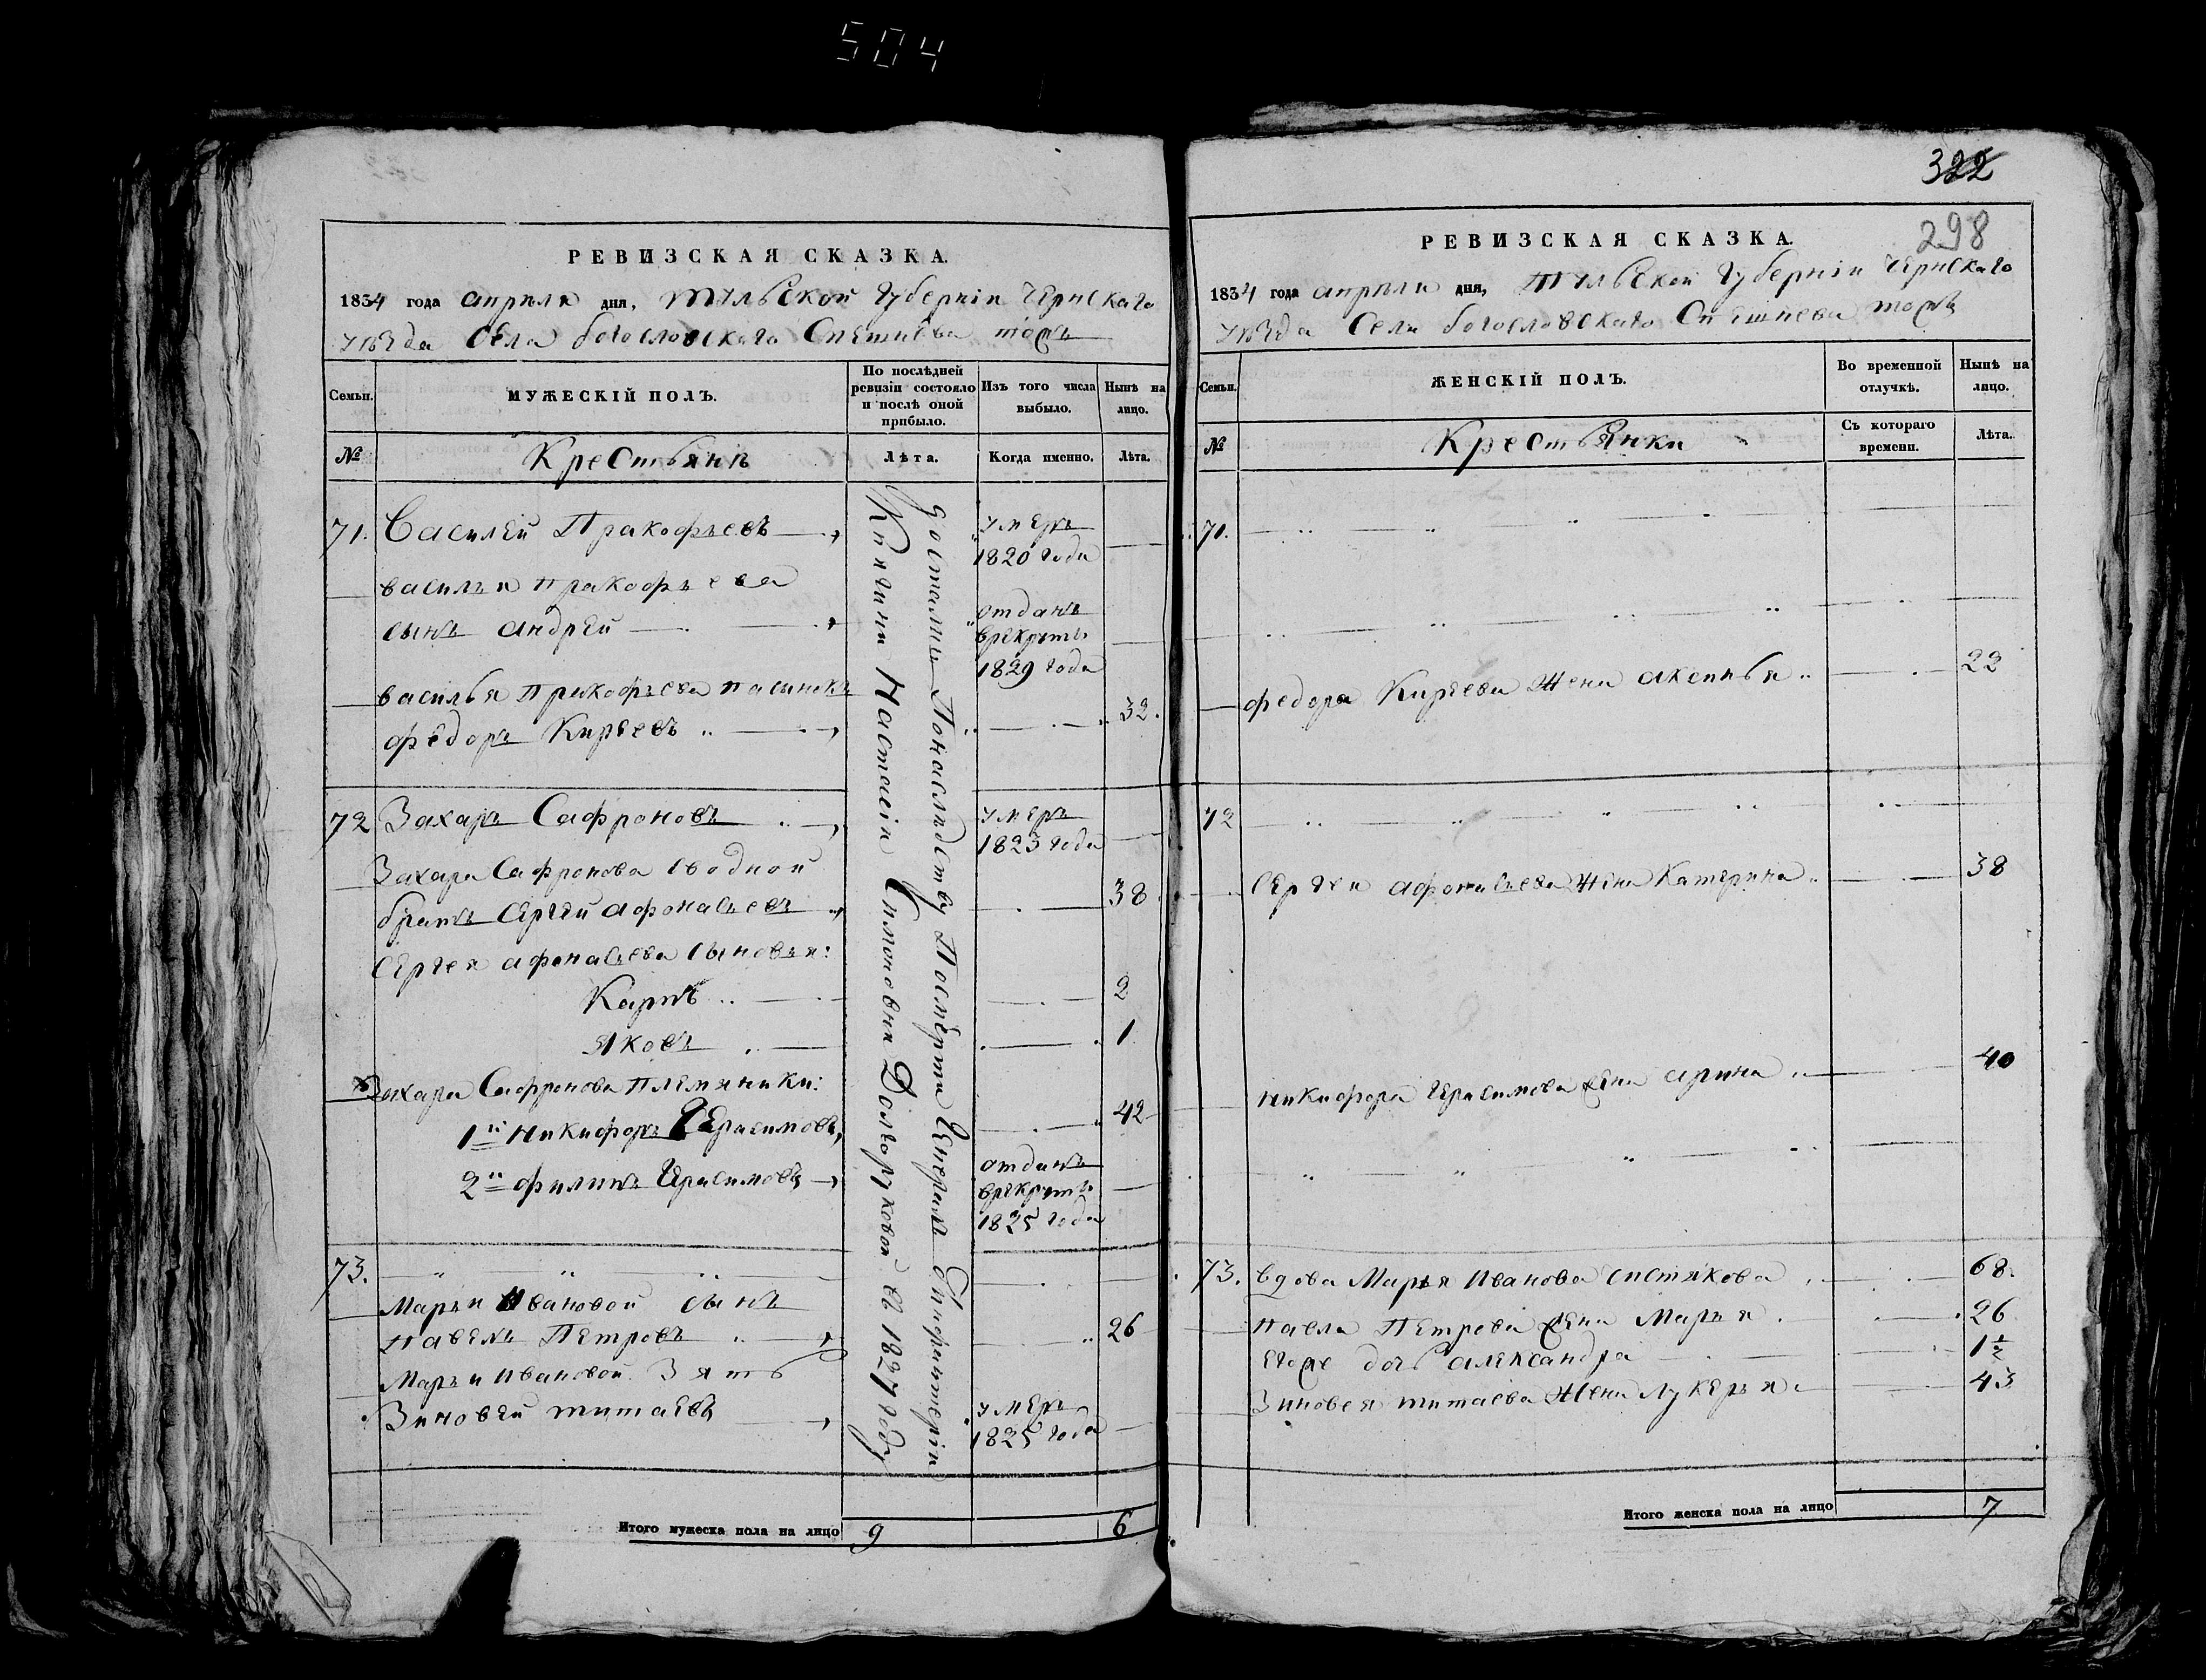 504
РЕВИЗСКАЯ СКАЗКА.
1834 года апреля дня, Тульской Губернiи Чернскаго
уезда Села богословскаго Спешнева тожъ
Семьи.
МУЖЕСКІЙ ПОЛЪ.
По послѣдней ревизіи состояло и послѣ оной прибыло.
Изъ того числа выбыло.
Нынѣ на лицо.
№
Крестьянѣ
Лѣта.
Когда именно.
Лѣта.
Досталны Понаследству Посмерти Генералъ
Княгини Настасіи Симоновны Долгоруковой въ 1827 году
71. Василей Пракофьевъ
умеръ
1820 года
василья пракофьева
сынъ андрей
отданъ
врекруты
1829 года
василья пракофьева пасынокъ
федоръ Киреевъ 32.
72 Захаръ Сафроновъ
умеръ
1823 года
Захара Сафронова сводной
братъ Сергей афонасьевъ 38
Сергея афонасьева сыновья:
Карпъ 2
Яковъ 1
Захара Сафронова племяники:
1й Никифоръ Герасимовъ, 42
2й филипъ Герасимовъ
отданъ
врекруты
1825 года
73.
Марьи Ивановой сынъ
павелъ Петровъ 26
Марьи ивановой Зять
Зиновей титаевъ
умеръ
1825 года
Итого мужеска пола на лицо 9 6
322
298
РЕВИЗСКАЯ СКАЗКА.
1834 года апрели дня, Тульской Губернiи Чернскаго
уезда Села богословскаго Спешнева тожъ
Семьи.
ЖЕНСКІЙ ПОЛЪ.
Во временной отлучкѣ.
Нынѣ на лицо.
№
Крестьянки
Съ котораго времени.
Лѣта.
71.
федора Киреева жена аксинья 22
72
Сергея афонасьева жена Катерина 38
Никифора Герасимова жена арина 40
73. вдова Марья Иванова 68.
павла Петрова жена Марья 26
Егоже дочь александра 1½
Зиновея титаева жена лукерья 43
Итого женска пола на лицо 7